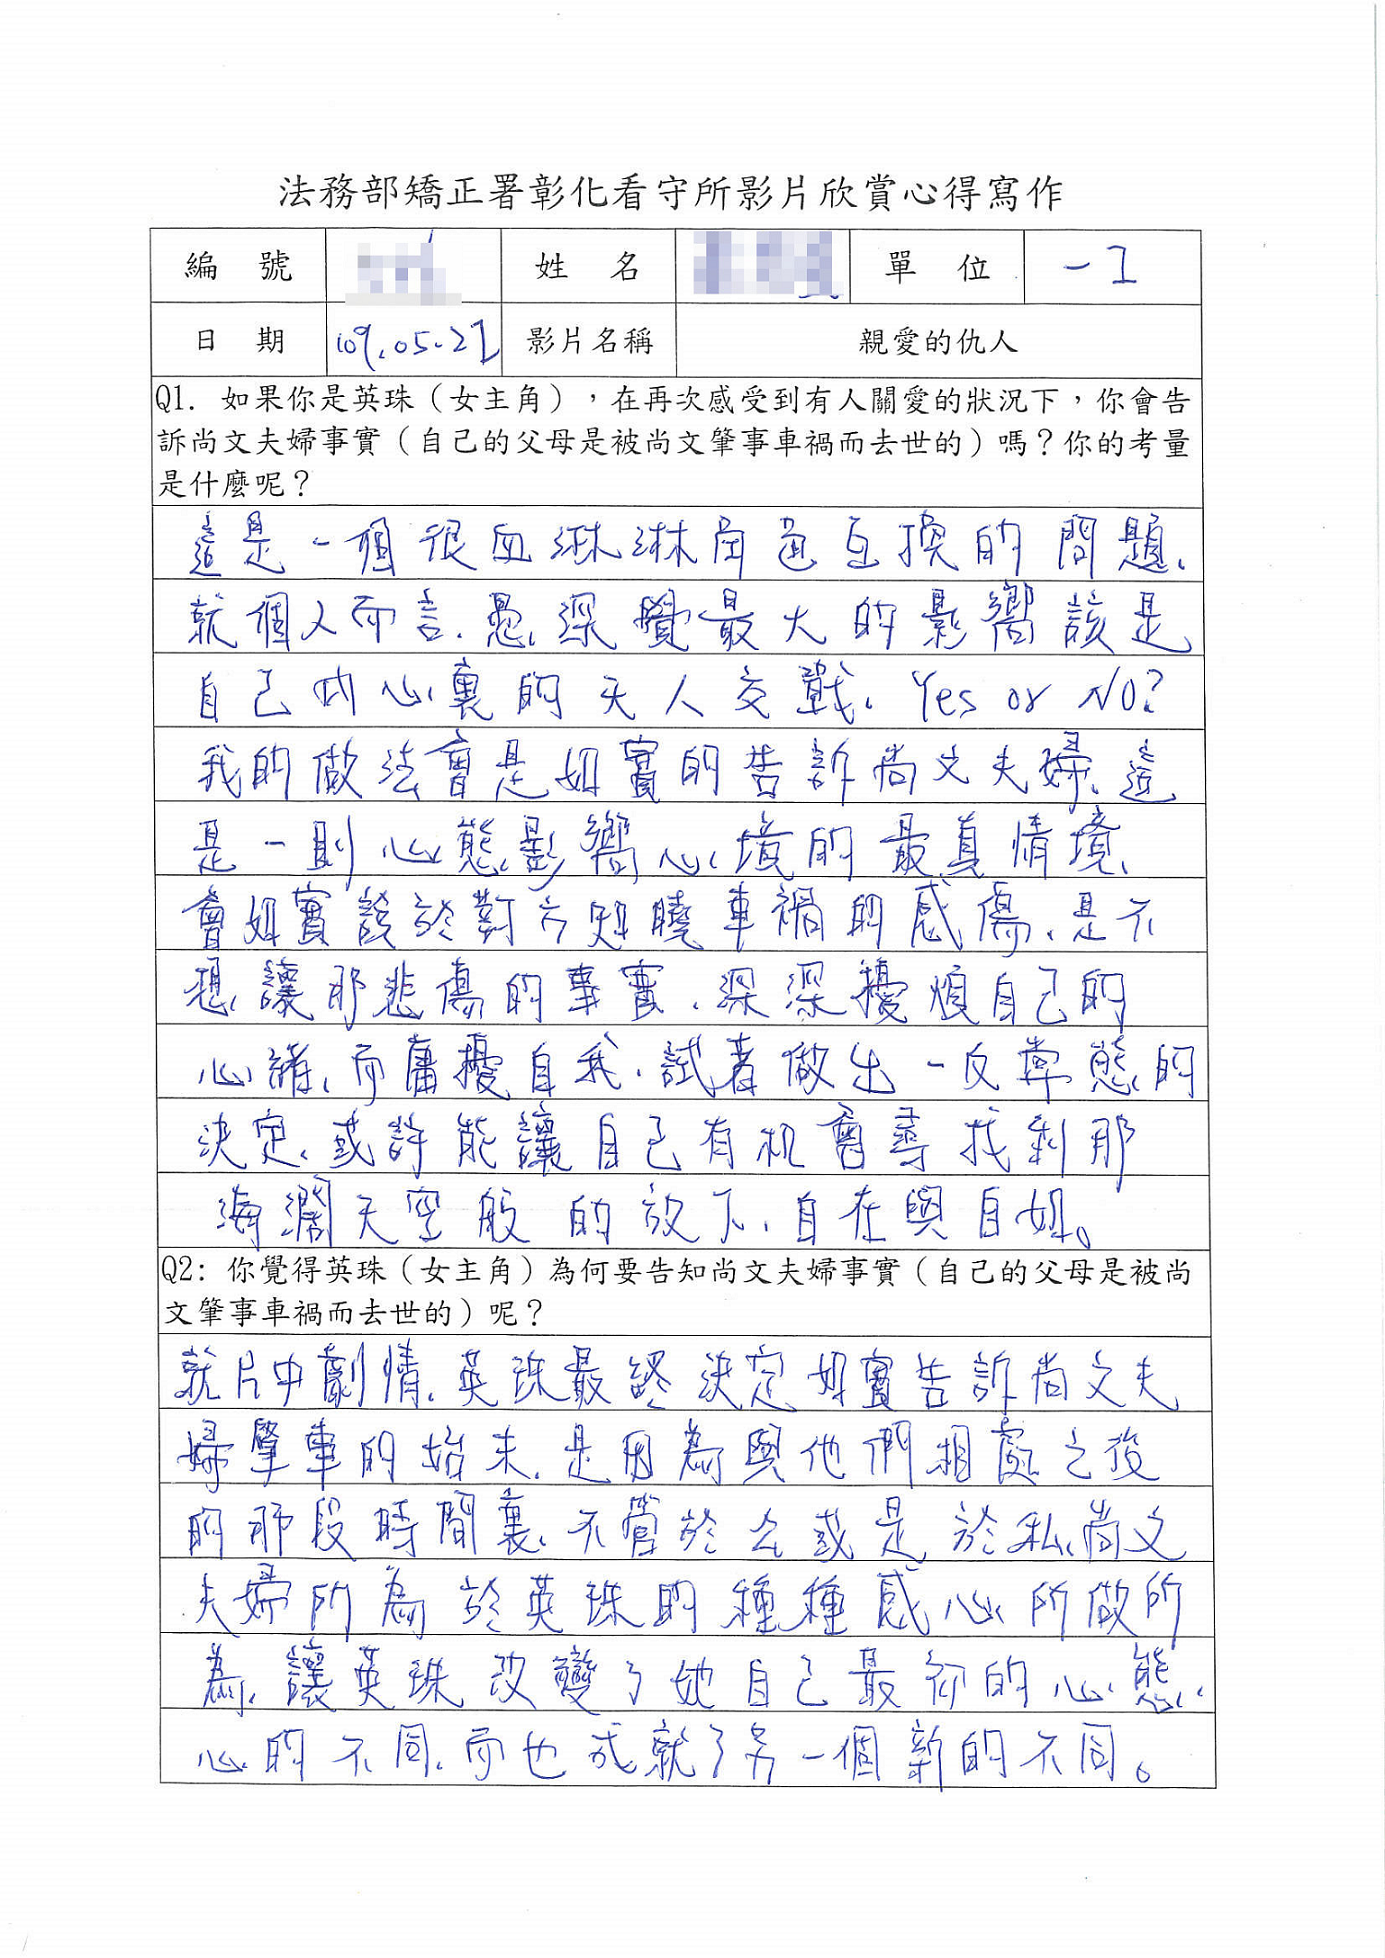 法務部矯正署彰化看守所影片欣賞心得寫作
編 號 姓 名 單 位 一工
日 期 109.05.27 影片名稱 親愛的仇人
Q1. 如果你是英珠（女主角），在再次感受到有人關愛的狀況下，你會告
訴尚文夫婦事實（自己的父母是被尚文肇事車禍而去世的）嗎？你的考量
是什麼呢？
這是一個很血淋淋角色互換的問題、
就個人而言、愚、深覺最大的影嚮該是
自己內心裏的天人交戰。Yes or No?
我的做法會是如實的告訴尚文夫婦、這
是一則心態影嚮心境的最真情境、
會如實說於對方知曉車禍的感傷、是不
想讓那悲傷的事實、深深擾煩自己的
心緒、而庸擾自我、試著做出一反常態的
決定、或許能讓自己有机會尋找剎那
海濶天空般的放下、自在與自如。
Q2: 你覺得英珠（女主角）為何要告知尚文夫婦事實（自己的父母是被尚
文肇事車禍而去世的）呢？
就片中劇情、英珠最終決定如實告訴尚文夫
婦肇車的始末、是因為與他們相處之後
的那段時間裏、不管於公或是於私、尚文
夫婦所為於英珠的種種感心所做所
為、讓英珠改變了她自己最初的心態、
心的不同、而也成就了另一個新的不同。